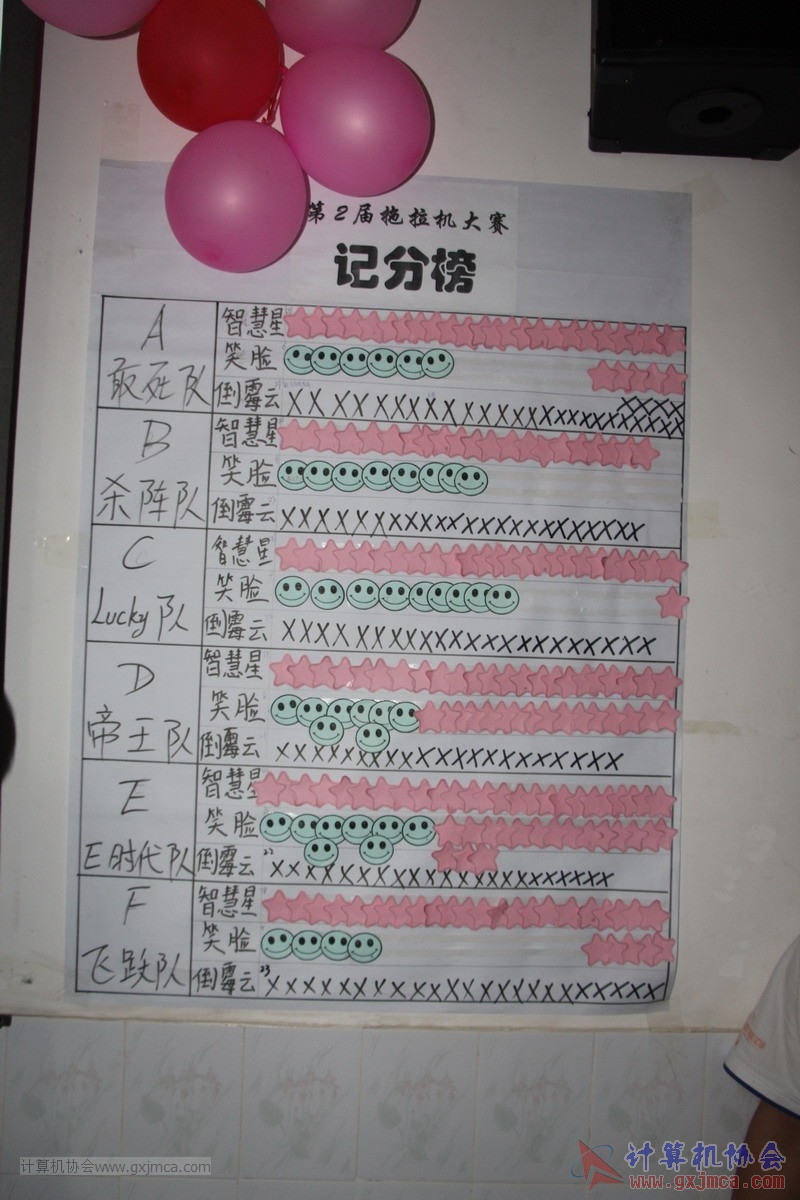 第2届拖拉机大赛
记分榜
A
敢死队
智慧星
笑脸
倒霉云 XX XX XXXXXXXXXXXXXXXXXXXXX
B
杀阵队
智慧星
笑脸
倒霉云 XXXXXXXXXXXXXXXXXXXXXXX
C
Lucky队
智慧星
笑脸
倒霉云 XXXXXXXXXXXXXXXXXXXXXX
D
帝王队
智慧星
笑脸
倒霉云 XXXXXXXXXXXXXXXXXXXXX
E
E时代队
智慧星
笑脸
倒霉云 22 XXXXXXXXXXXXXXXXXXXXXX
F
飞跃队
智慧星
笑脸
倒霉云 23 XXXXXXXXXXXXXXXXXXXXXXX
计算机协会www.gxjmca.com
计算机协会
www.gxjmca.com